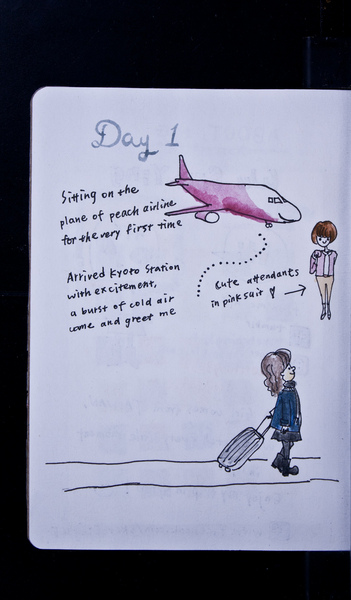 Day 1
Sitting on the
plane of peach airline
for the very first time
Arrived Kyoto Station
with excitement,
a burst of cold air
come and greet me
Cute attendants
in pink suit